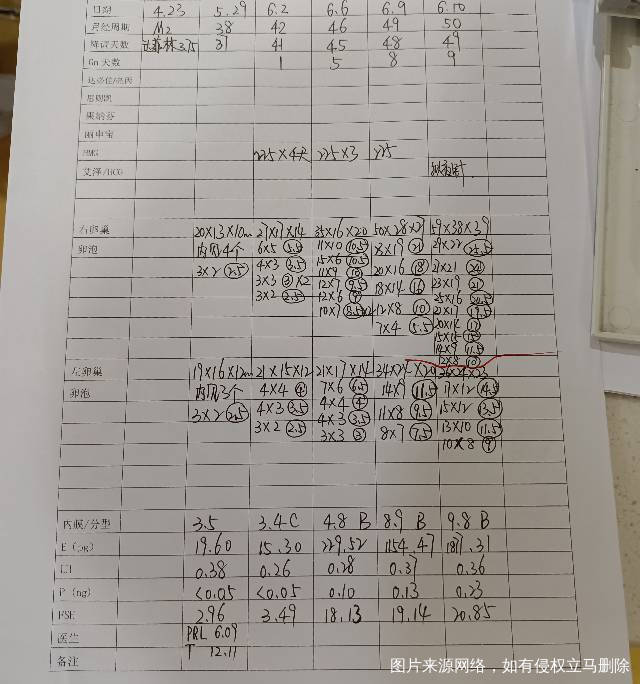 日期 4.23 5.29 6.2 6.6 6.9 6.10
月经周期 M2 38 42 46 49 50
降调天数 达菲林3.75 37 41 45 48 49
Gn天数 1 5 8 9
达必佳/达菲
思则凯
果纳芬
丽申宝
HMG 225×4天 225×3 225
艾泽/HCG
右卵巢 20×13×10m 27×17×14 35×16×20 50×28×27 59×38×39
卵泡 内见4个 6×5 5.5 11×10 10.5 ×19 21 29×22 25.5
3×2 2.5 4×3 3.5 15×6 10.5 20×16 18 27×21 24
3×3 3 ×2 11×9 10 18×14 16 23×19 21
3×2 2.5 12×7 9.5 12×8 10 25×16 20.5
12×6 9 7×4 5.5 20×17
10×7 8.5 20×14 17
15×15 15
14×9 11.5
12×8 10
左卵巢 19×16×12m 21×15×12 21×17×14
卵泡 内见3个 4×4 4 7×6 6.5 14×9 11.5 17×12
3×2 2.5 4×3 3.5 4×4 4 11×8 9.5 15×12 13.5
3×2 2.5 4×3 3.5 8×7 7.5 13×10 11.5
3×3 3 10×8 9
内膜/分型 3.5 3.4 C 4.8 B 8.9 B 9.8 B
E 19.60 15.30 229.52 1154.47 1817.31
LH 0.38 0.26 0.28 0.37 0.36
P (ng) <0.05 <0.05 0.10 0.13 0.23
FSH 2.96 3.49 18.13 19.14 20.85
医生 PRL 6.09
备注 T 12.11
图片来源网络，如有侵权立马删除